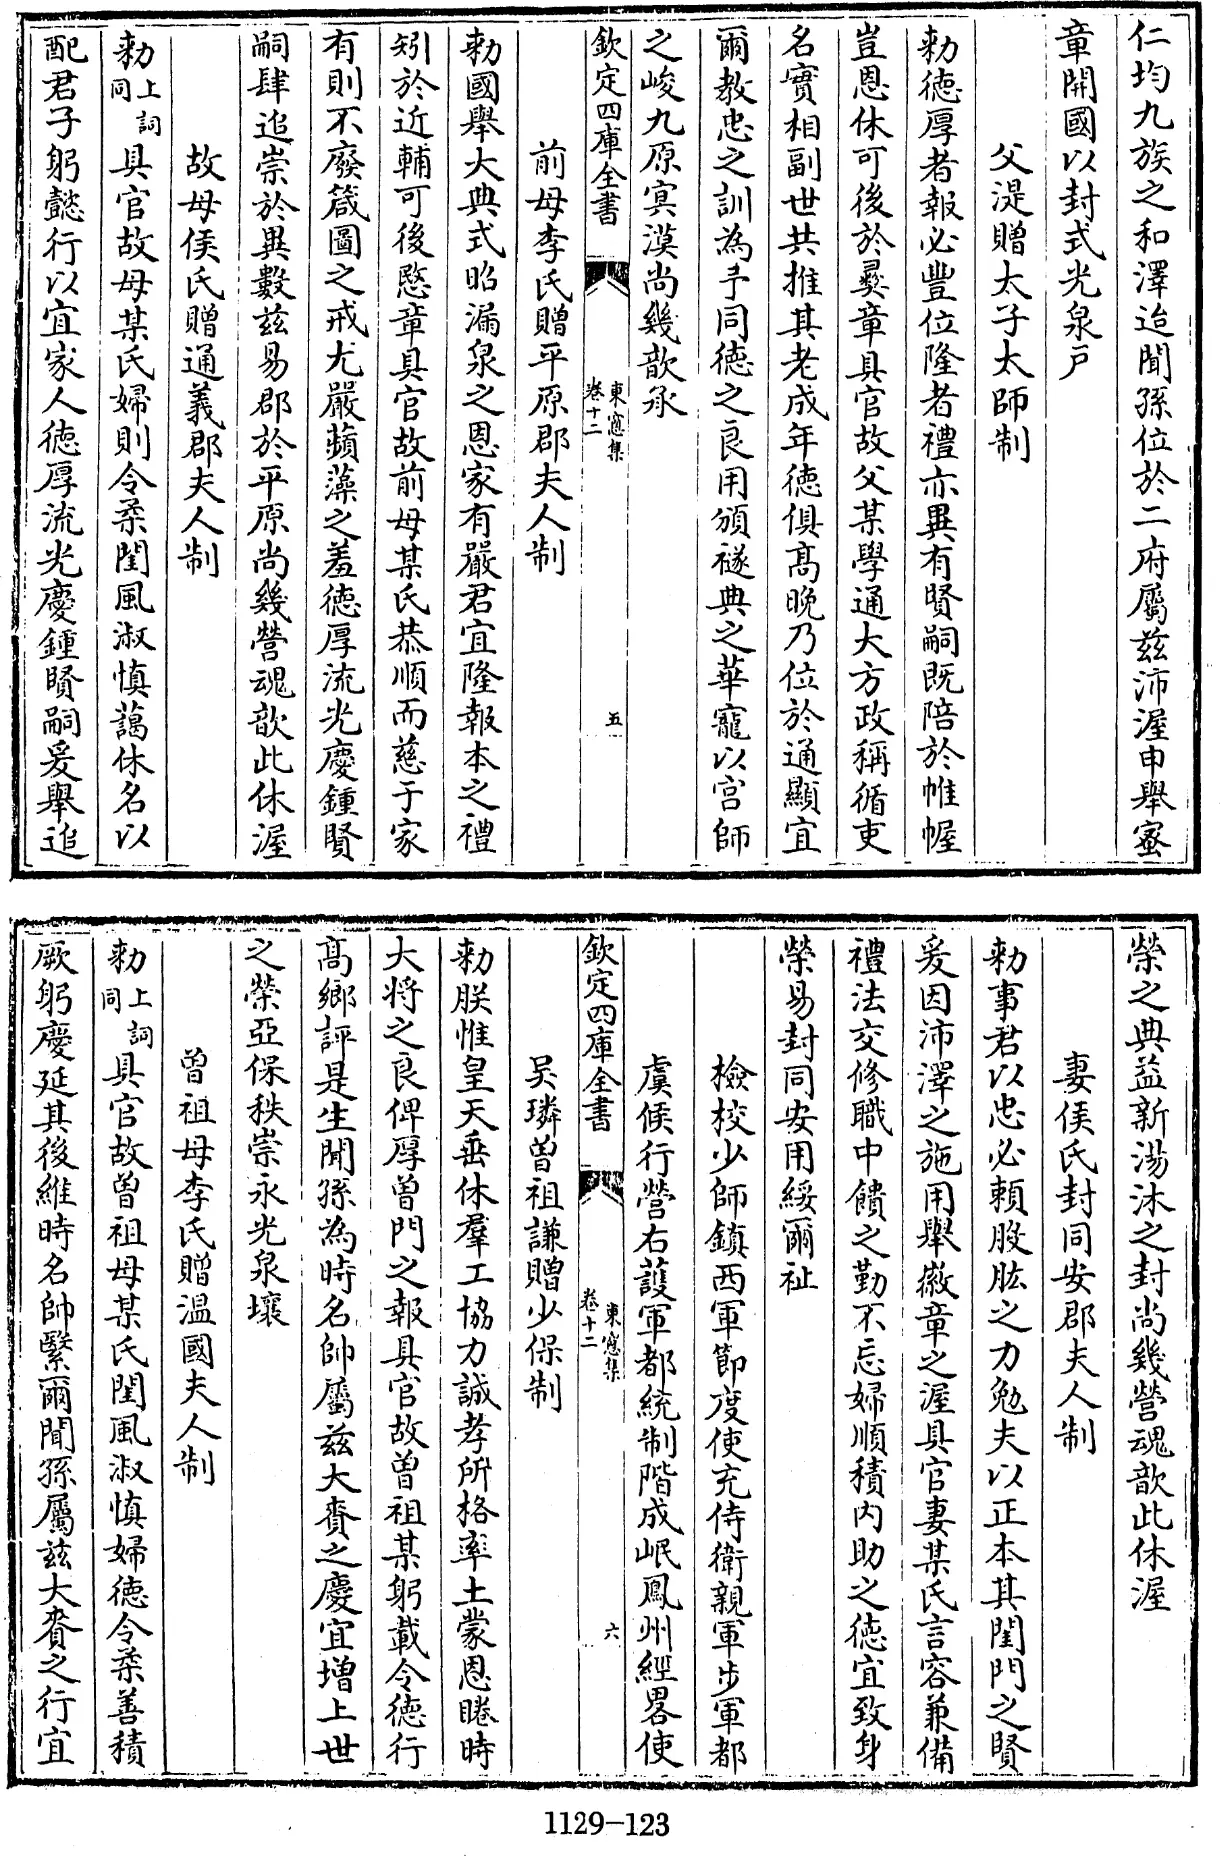 仁均九族之和澤迨聞孫位於二府屬兹沛渥申舉蜜
章開國以封式光泉戸
父湜贈太子太師制
勅徳厚者報必豐位隆者禮亦異有賢嗣既陪於帷幄
豈恩休可後於彛章具官故父某學通大方政稱循吏
名實相副世共推其老成年徳俱髙晩乃位於通顯宜
爾教忠之訓為予同徳之良用頒襚典之華寵以宫師
之峻九原㝠漠尚幾歆承
欽定四庫全書
東窻集
卷十二
五
前母李氏贈平原郡夫人制
勅國舉大典式昭漏泉之恩家有嚴君宜隆報本之禮
矧於近輔可後愍章具官故前母某氏恭順而慈于家
有則不廢箴圖之戒尤嚴蘋藻之羞徳厚流光慶鍾賢
嗣肆追崇於異數兹易郡於平原尚幾營魂歆此休渥
故母侯氏贈通義郡夫人制
勅上詞同具官故母某氏婦則令柔閨風淑慎藹休名以
配君子躬懿行以宜家人徳厚流光慶鍾賢嗣爰舉追
榮之典益新湯沐之封尚幾營魂歆此休渥
妻侯氏封同安郡夫人制
勅事君以忠必頼股肱之力勉夫以正本其閨門之賢
爰因沛澤之施用舉徽章之渥具官妻某氏言容兼備
禮法交修職中饋之勤不忘婦順積内助之徳宜致身
榮易封同安用綏爾祉
檢校少師鎮西軍節度使充侍衛親軍步軍都
虞候行營右䕶軍都統制階成岷鳳州經畧使
欽定四庫全書
東窻集
卷十二
六
吴璘曽祖謙贈少保制
勅朕惟皇天垂休羣工協力誠孝所格率土蒙恩睠時
大將之良俾厚曽門之報具官故曽祖某躬載令徳行
髙鄉評是生聞孫為時名帥屬兹大賚之慶宜增上世
之榮亞保秩崇永光泉壤
曽祖母李氏贈温國夫人制
勅上詞同具官故曽祖母某氏閨風淑慎婦徳令柔善積
厥躬慶延其後維時名帥繄爾聞孫屬兹大賚之行宜
1129-123